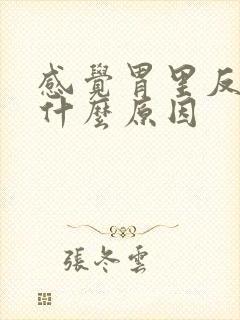 感覺胃里反
什麼原因
張冬雲